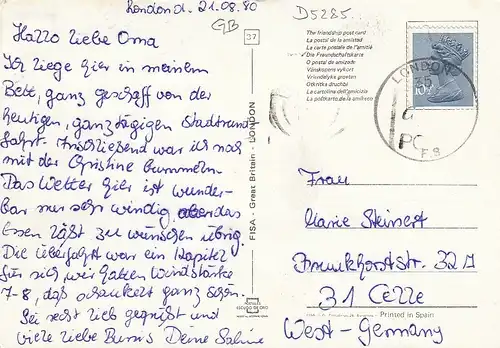 London d. 21.08.80
GB
D5285
Hallo liebe Oma
Ich liege hier in meinem
Bett, ganz geschafft von der
heutigen, ganztägigen Stadtrund-
fahrt. Anschließend war ich noch
mit der Christine bummeln.
Das Wetter hier ist wunder-
bar nur sehr windig aber das
Essen läßt zu wünschen übrig.
Die Überfahrt war ein Kapitel
für sich, wir hatten Windstärke
7-8, das schaukelt ganz schön.
Sei recht lieb gegrüßt und
viele liebe Bussis Deine Sabine
37
FISA - Great Britain - LONDON
ESCUDO DE ORO
The friendship post card
La postal de la amistad
La carte postale de l'amitié
Die Freundschaftskarte
O postal de amizade
Vänskapens vykort
Vriendelyke groeten
Otkritka druzhbi
La cartolina dell'amicizia
La postkarto de la amikeco
10½P
LONDON
F.S
Frau
Marie Steinert
Bruckhorststr. 32A
31 Celle
Printed in Spain
West-Germany